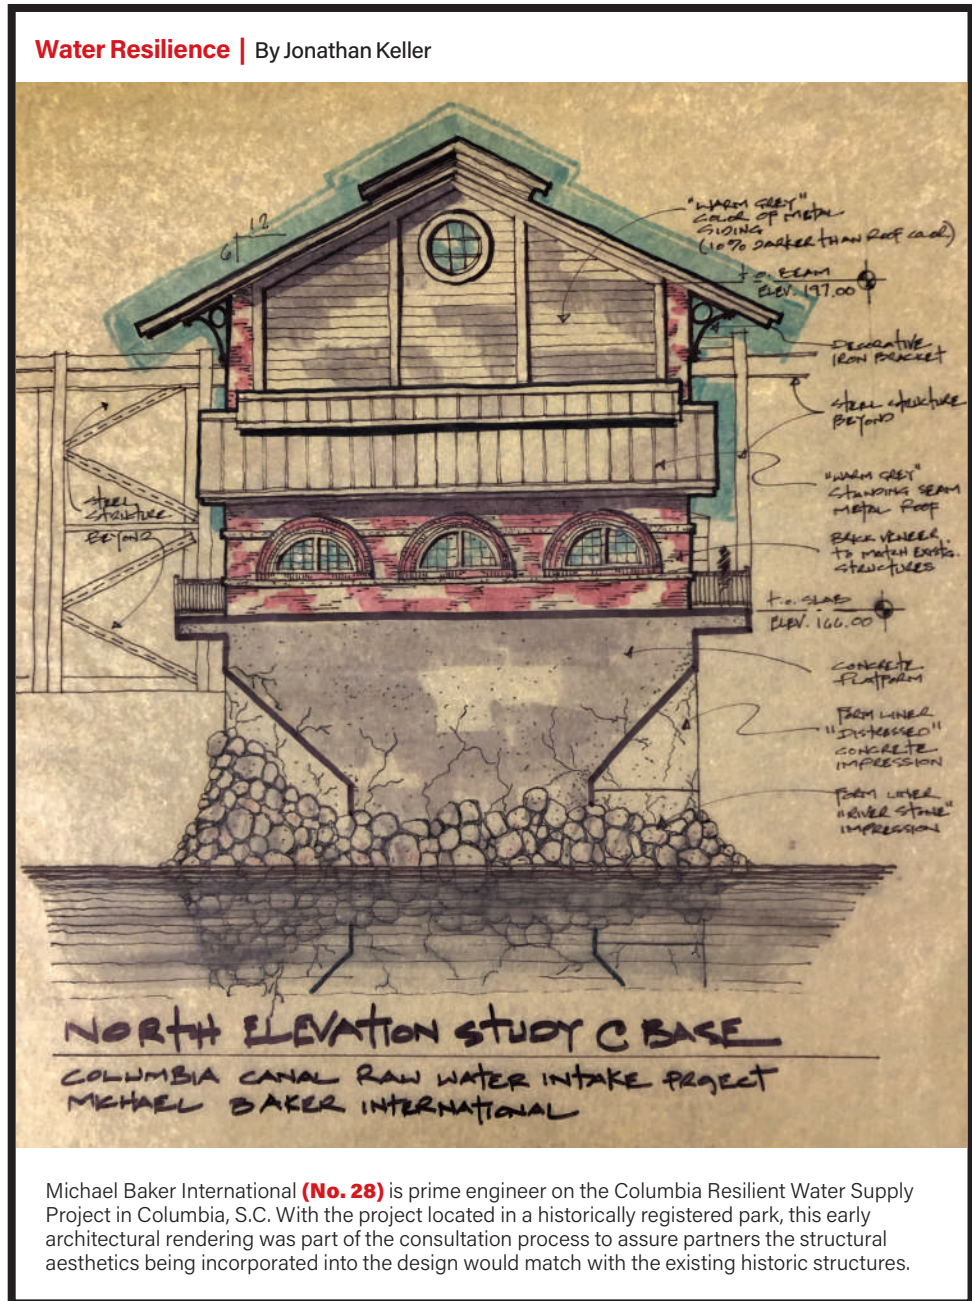 Water Resilience | By Jonathan Keller
12
6
"WARM GREY"
COLOR OF METAL
SIDING
(10% DARKER THAN ROOF COLOR)
t.o. BEAM
ELEV. 197.00
DECORATIVE
IRON BRACKET
STEEL STRUCTURE
BEYOND
"WARM GREY"
STANDING SEAM
METAL ROOF
STEEL
STRUCTURE
BEYOND
BRICK VENEER
to MATCH EXIST'G.
STRUCTURES
t.o. SLAB
ELEV. 166.00
CONCRETE
PLATFORM
FORM LINER
"DISTRESSED"
CONCRETE
IMPRESSION
FORM LINER
"RIVER STONE"
IMPRESSION
NORTH ELEVATION STUDY C BASE
COLUMBIA CANAL RAW WATER INTAKE PROJECT
MICHAEL BAKER INTERNATIONAL
Michael Baker International (No. 28) is prime engineer on the Columbia Resilient Water Supply
Project in Columbia, S.C. With the project located in a historically registered park, this early
architectural rendering was part of the consultation process to assure partners the structural
aesthetics being incorporated into the design would match with the existing historic structures.